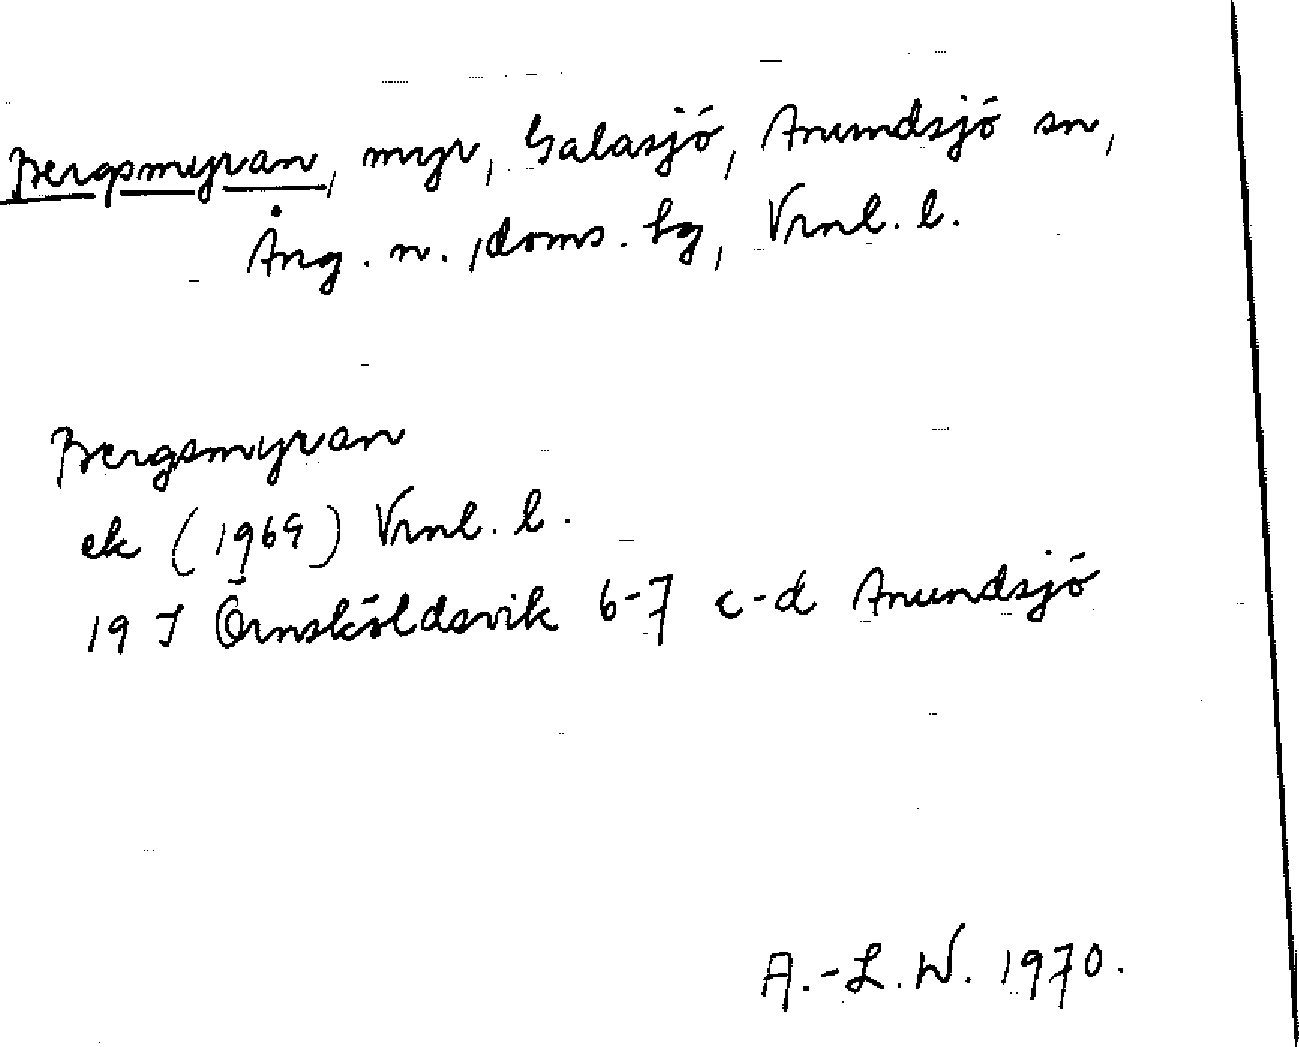 Bergsmyran, myr, Galasjö, Anundsjö sn,
Ång. n. doms. hg, Vrnl. l.
Bergsmyran
ek (1969) Vrnl. l.
19 J Örnsköldsvik 6-7 c-d Anundsjö
A.-L. W. 1970.